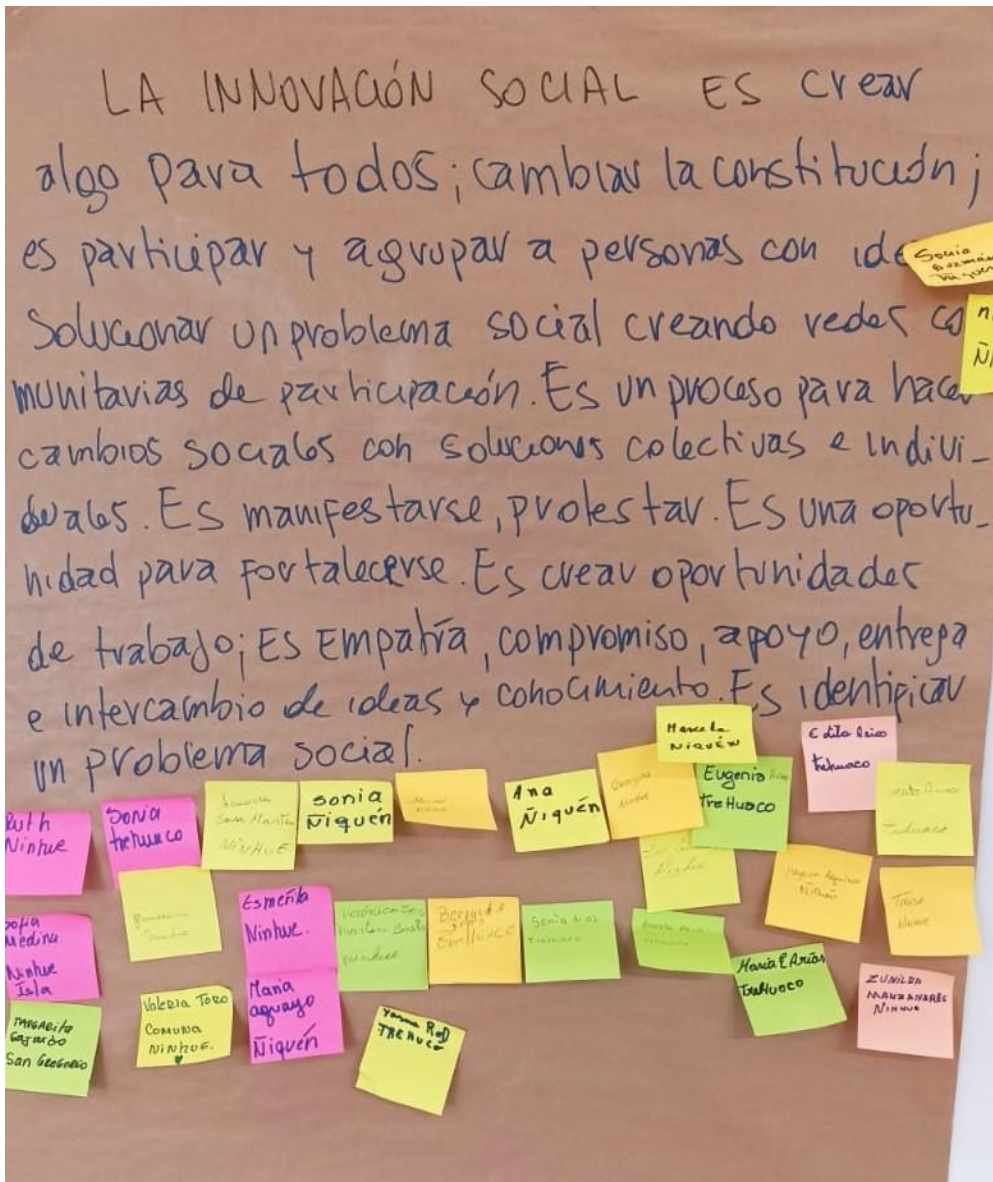 LA INNOVACIÓN SOCIAL ES crear
algo para todos; cambiar la constitución;
es participar y agrupar a personas con ide
Solucionar un problema social creando redes co
munitarias de participación. Es un proceso para hacer
cambios sociales con soluciones colectivas e indivi-
duales. Es manifestarse, protestar. Es una oportu-
nidad para fortalecerse. Es crear oportunidades
de trabajo; Es Empatía, compromiso, apoyo, entrega
e intercambio de ideas y conocimiento. Es identificar
un problema social.
Sonia
Marcela
Ñiquén
Trehuaco
Ruth
Ninhue
Sonia
trehuaco
NINHUE
sonia
Ñiquén
Ana
Ñiquén
Ninhue
Eugenia
TreHuaco
Trehuaco
Medina
Ninhue
Isla
Esmerita
Ninhue.
Verónica
Ninhue
Sonia
Trehuaco
Ninhue
Maria E Arias
TreHuaco
ZUNILDA
MANZANARES
Ninhue
MARGARITA
Gajardo
San Gregorio
Valeria Toro
Comuna
Ninhue.
Maria
aguayo
Ñiquén
TREHUACO